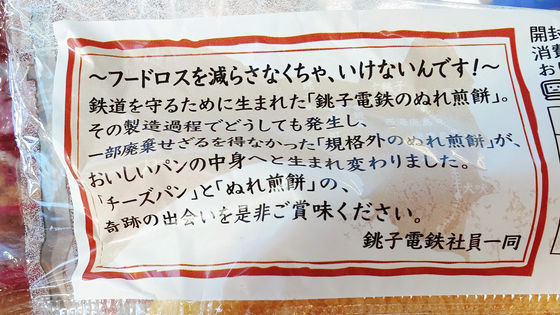 ～フードロスを減らさなくちゃ、いけないんです！～
鉄道を守るために生まれた「銚子電鉄のぬれ煎餅」。
その製造過程でどうしても発生し、
一部廃棄せざるを得なかった「規格外のぬれ煎餅」が、
おいしいパンの中身へと生まれ変わりました。
「チーズパン」と「ぬれ煎餅」の、
奇跡の出会いを是非ご賞味ください。
銚子電鉄社員一同
開封
消費
お